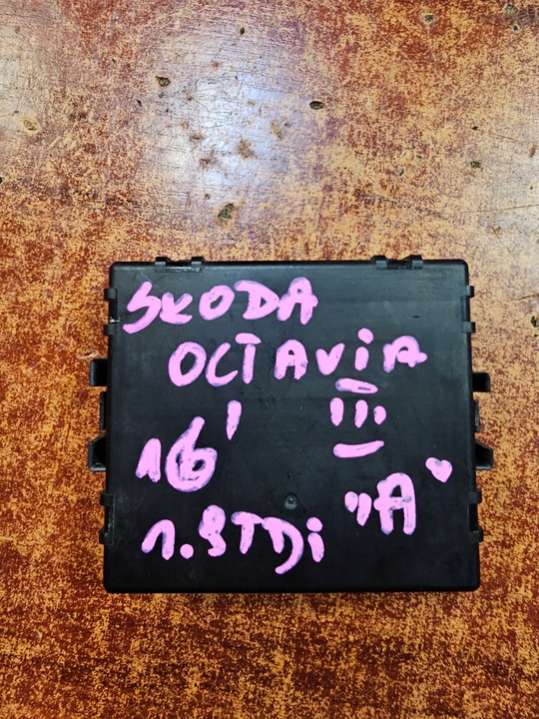 SKODA
OCTAVIA
16' III
1.9TDi "A"